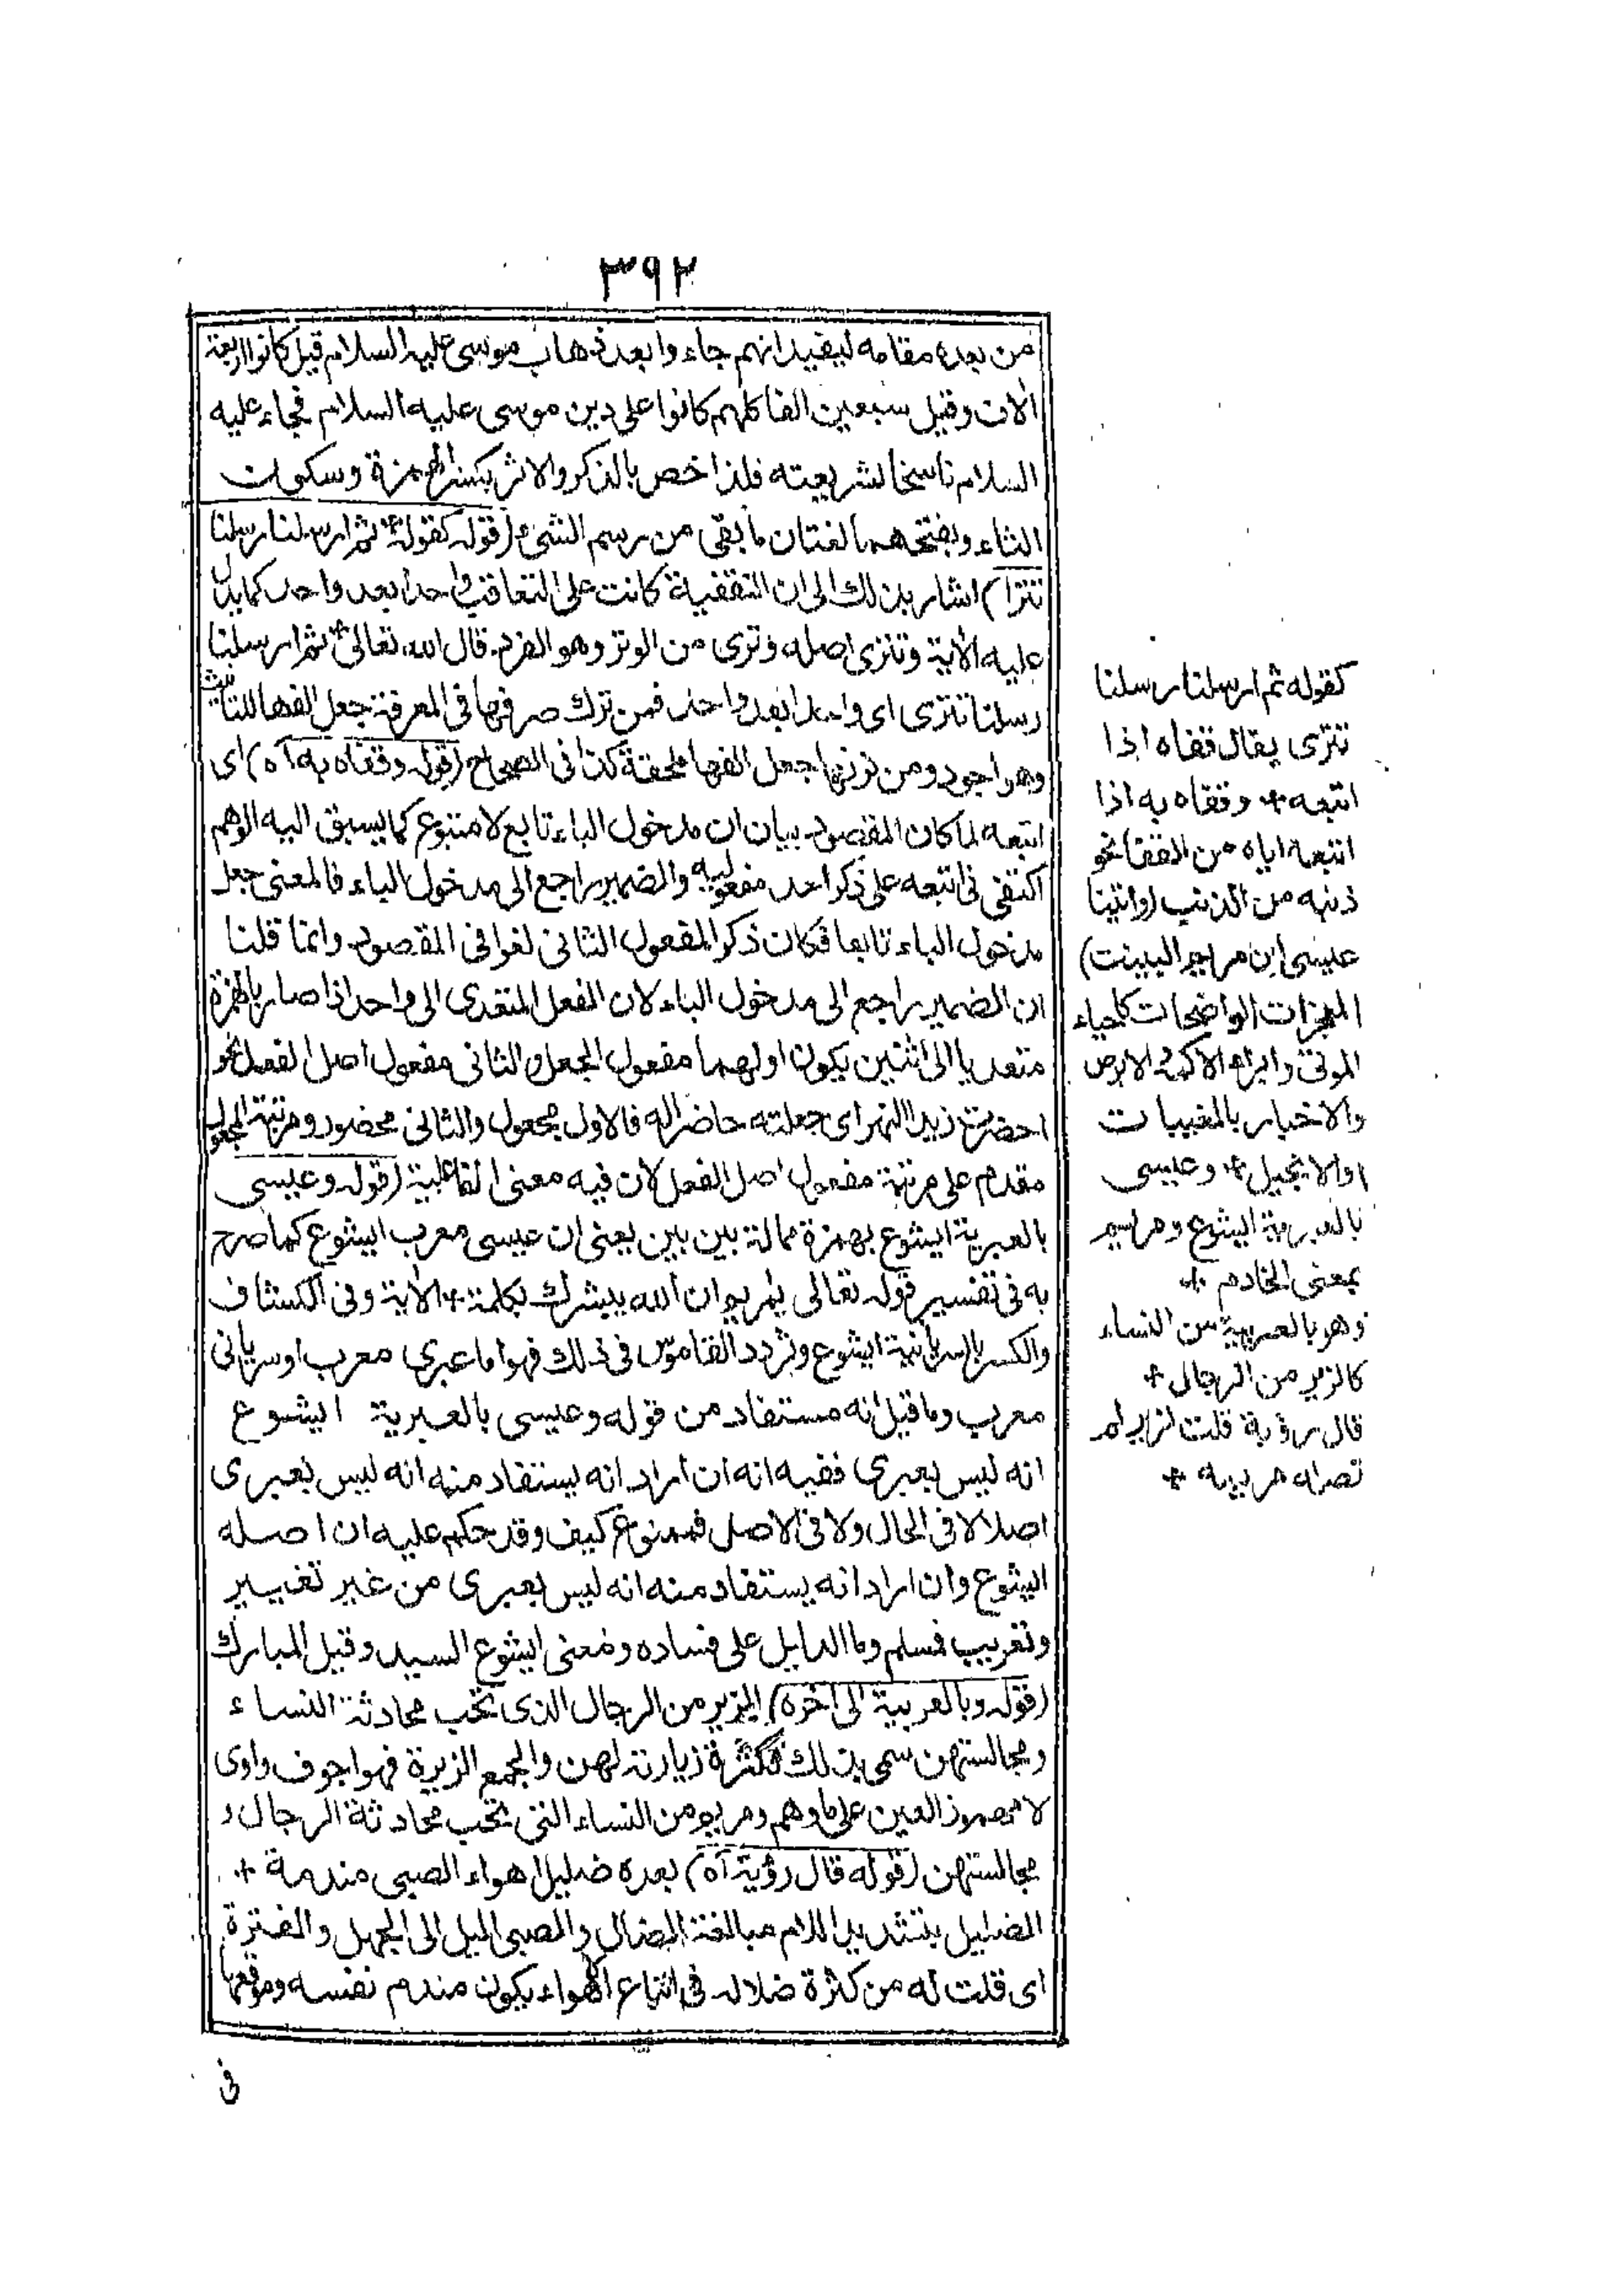 ٣٩٢
من بعده مقامه ليفيد انهم جاءوا بعد ذهاب موسى عليه السلام قيل كانوا اربعة
الاف وقيل سبعين الفا كلهم كانوا على دين موسى عليه السلام فجاء عليه
السلام ناسخا لشريعته فلذا خص بالذكر والاثر بكسر الهمزة وسكون
الثاء وبفتحهما لغتان ما بقى من رسم الشئ (قوله كقوله ثم ارسلنا رسلنا
تترا) اشار بذلك الى ان التقفية كانت على التعاقب واحدا بعد واحد كما يدل
عليه الاية وتترى اصله وترى من الوتر وهو الفرد قال الله تعالى ثم ارسلنا
رسلنا تترى اى واحدا بعد واحد فمن ترك صرفها فى المعرفة جعل الفها للتانيث
وهو اجود ومن نونها جعل الفها ملحقة كذا فى الصحاح (قوله وقفاه به آه) اى
اتبعه لما كان المقصود بيان ان مدخول الباء تابع لا متبوع كما يسبق اليه الوهم
اكتفى فى اتبعه على ذكر احد مفعوليه والضمير راجع الى مدخول الباء فالمعنى جعل
مدخول الباء تابعا فكان ذكر المفعول الثانى لغوا فى المقصود وانما قلنا
ان الضمير راجع الى مدخول الباء لان الفعل المتعدى الى واحد اذا صار بالهمزة
متعديا الى اثنين يكون اولهما مفعول الجعل والثانى مفعول اصل الفعل نحو
احضرت زيدا النهر اى جعلته حاضرا له فالاول مجعول والثانى محضور ومرتبة المجعول
مقدم على مرتبة مفعول اصل الفعل لان فيه معنى الفاعلية (قوله وعيسى
بالعبرية ايشوع بهمزة ممالة بين بين يعنى ان عيسى معرب ايشوع كما صرح
به فى تفسير قوله تعالى يمريم ان الله يبشرك بكلمة + الاية وفى الكشاف
والكسر بالسريانية ايشوع وتردد القاموس فى ذلك فهو اما عبرى معرب او سريانى
معرب وما قيل انه مستفاد من قوله وعيسى بالعبرية ايشوع
انه ليس بعبرى ففيه انه ان اراد انه يستفاد منه انه ليس بعبرى
اصلا لا فى الحال ولا فى الاصل فممنوع كيف وقد حكم عليه ان اصله
ايشوع وان اراد انه يستفاد منه انه ليس بعبرى من غير تغيير
وتعريب فمسلم وما الدليل على فساده ومعنى ايشوع السيد وقيل المبارك
(قوله وبالعربية الى اخره) الزير من الرجال الذى يحب محادثة النساء
ومجالستهن سمى بذلك لكثرة زيارته لهن والجمع الزيرة فهو اجوف واوى
لا مهموز العين على ما وهم ومريم من النساء التى تحب محادثة الرجال و
مجالستهن (قوله قال رؤية آه) بعده ضليل اهواء الصبى مندمة +
الضليل بتشديد اللام مبالغة الضال والصبى الميل الى الجهل والفترة
اى قلت له من كثرة ضلاله فى اتباع الاهواء يكون مندم نفسه وموقعها
فى
كقوله ثم ارسلنا رسلنا
تترى يقال قفاه اذا
اتبعه + وقفاه به اذا
اتبعه اياه من القفا نحو
ذنبه من الذنب (واتينا
عيسى ابن مريم البينت)
المعجزات الواضحات كاحياء
الموتى وابراء الاكمه والابرص
والاخبار بالمغيبات
اوالانجيل + وعيسى
بالعبرية ايشوع ومريم
بمعنى الخادم +
وهو بالعربية من النساء
كالزير من الرجال +
قال رؤبة قلت لزير لم
تصله مريمه +